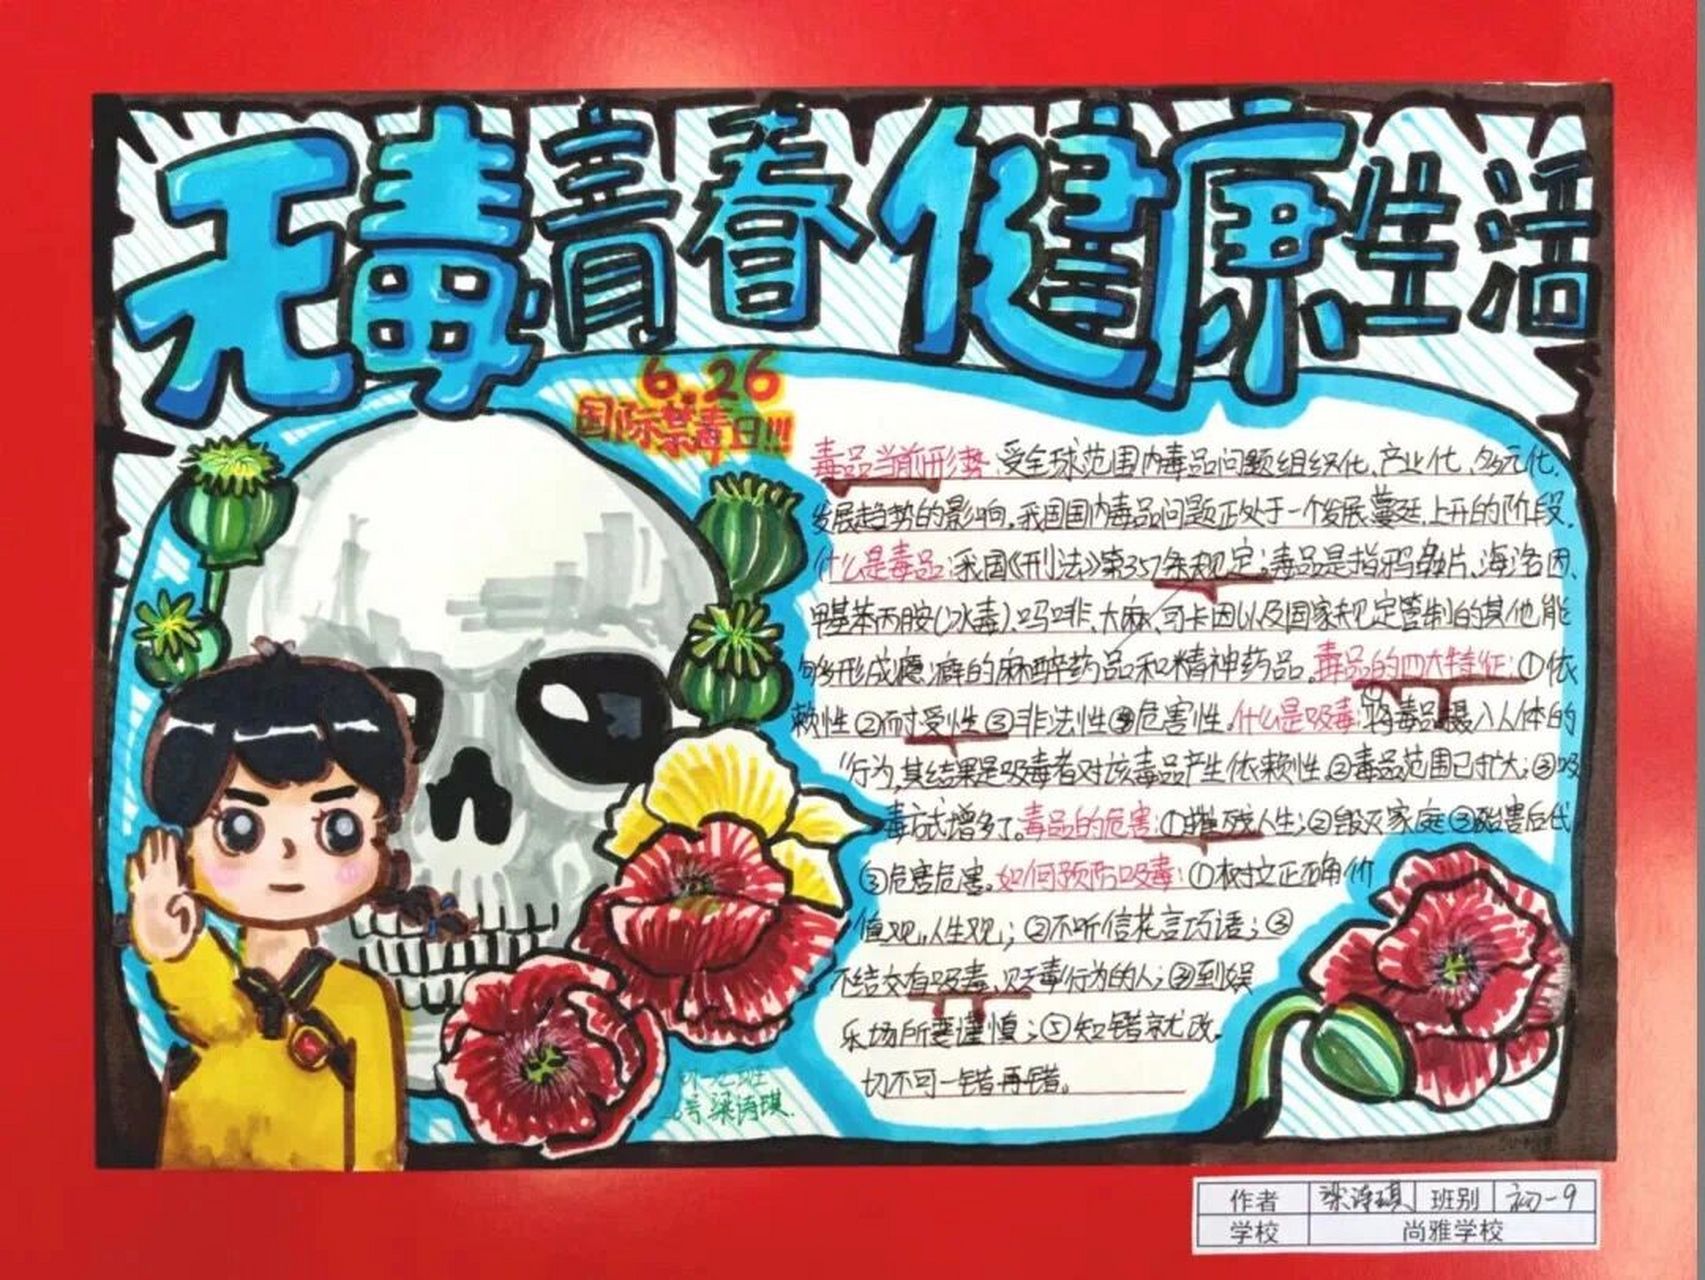 无毒青春 健康生活
6.26
国际禁毒日!!!
毒品当前形势:受全球范围内毒品问题组织化、产业化、多元化、
发展趋势的影响,我国国内毒品问题正处于一个发展蔓延、上升的阶段。
什么是毒品:我国《刑法》第357条规定:毒品是指鸦片、海洛因、
甲基苯丙胺(冰毒)、吗啡、大麻、可卡因以及国家规定管制的其他能
够形成瘾癖的麻醉药品和精神药品。毒品的四大特征:①依
赖性②耐受性③非法性④危害性。什么是吸毒:①将毒品摄入人体的
行为,其结果是吸毒者对该毒品产生依赖性,②毒品范围已扩大;③吸
毒方式增多了。毒品的危害:①摧残人生;②毁灭家庭③贻害后代
③危害危害。如何预防吸毒:①树立正确价
值观,人生观;②不听信花言巧语;③
不结交有吸毒、贩毒行为的人;④到娱
乐场所要谨慎;⑤知错就改。
切不可一错再错。
初一九班
号 梁诗琪.
作者 梁诗琪 班别 初一9
学校 尚雅学校